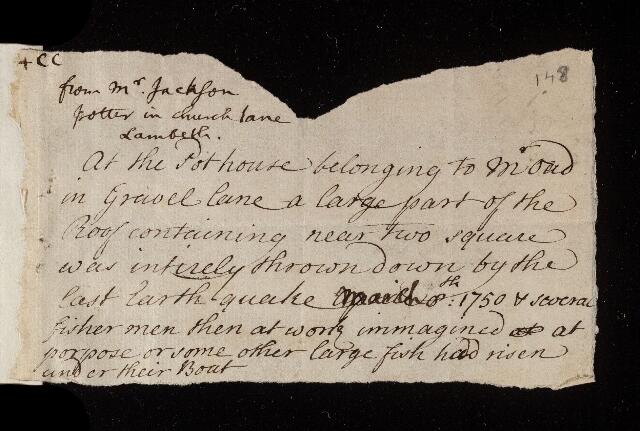 +CC
148
from Mr. Jackson
potter in church lane
Lambeth.
At the Pothouse belonging to Mr Oad
in Gravel lane a large part of the
Roof containing near two square
was intirely thrown down by the
last Earth-quake March 8th. 1750 & several
fisher men then at work immagined at at
porpose or some other large fish had risen
under their Boat